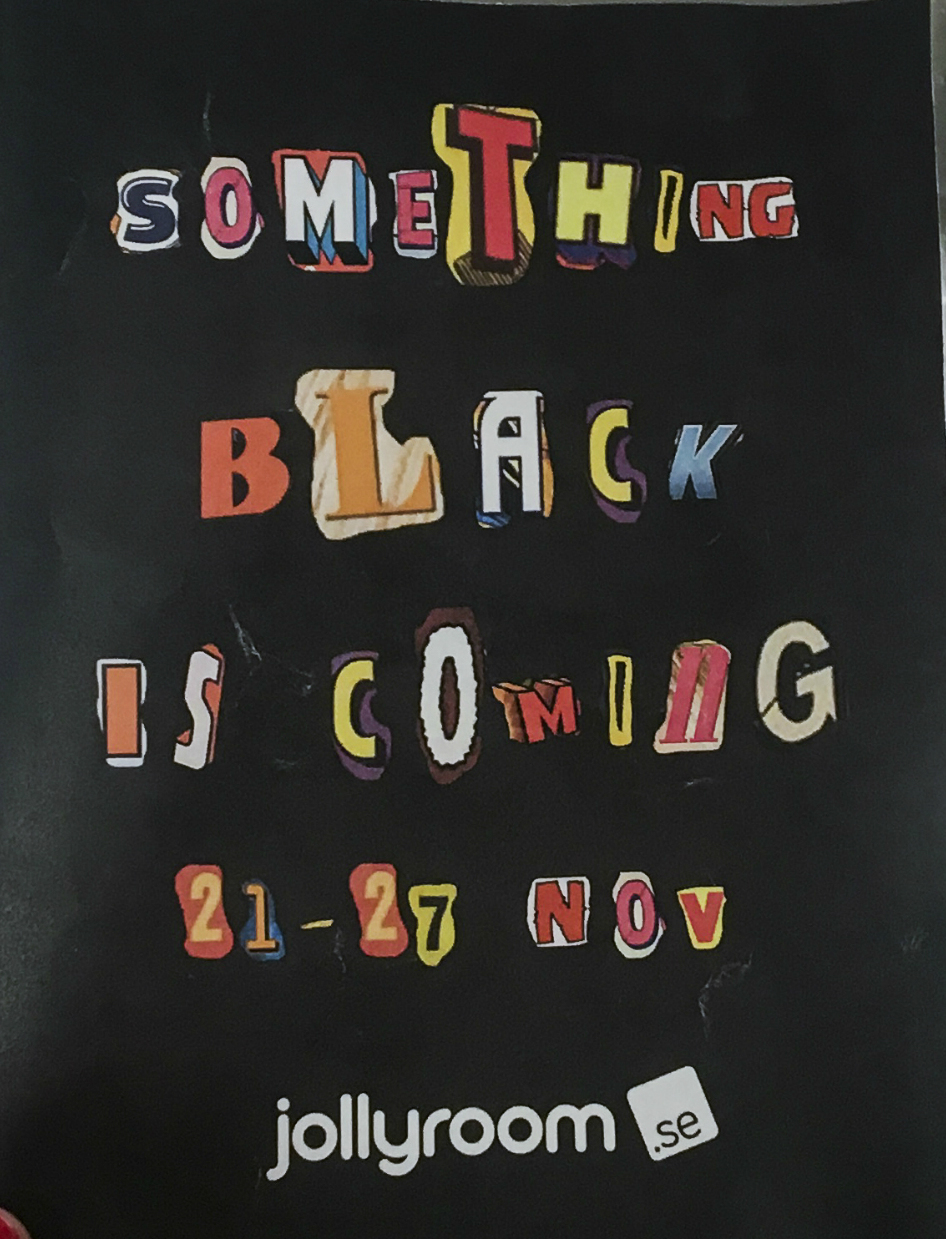 SOMETHING
BLACK
IS COMInG
21-27 NOV
jollyroom .se